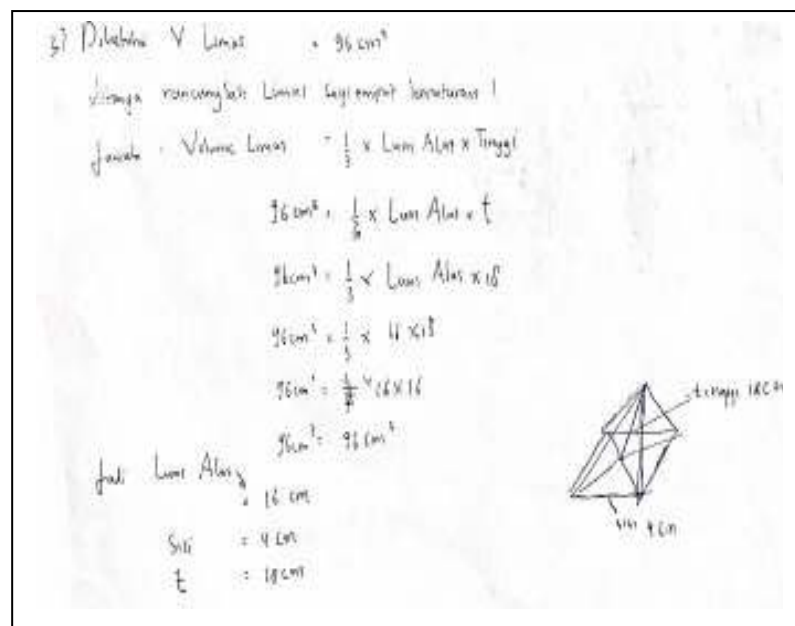 3) Diketahui V Limas = 96 cm³
rancanglah Limas segiempat beraturan !
Jawab : Volume Limas = 1/3 x Luas Alas x Tinggi
96 cm³ = 1/3 x Luas Alas x t
96 cm³ = 1/3 x Luas Alas x 18
96 cm³ = 1/3 x 16 x 18
96 cm³ = x 16 x
96 cm³ = 96 cm³
Jadi Luas Alas
= 16 cm
Sisi = 4 cm
t = 18 cm
tinggi 18 cm
sisi 4 cm